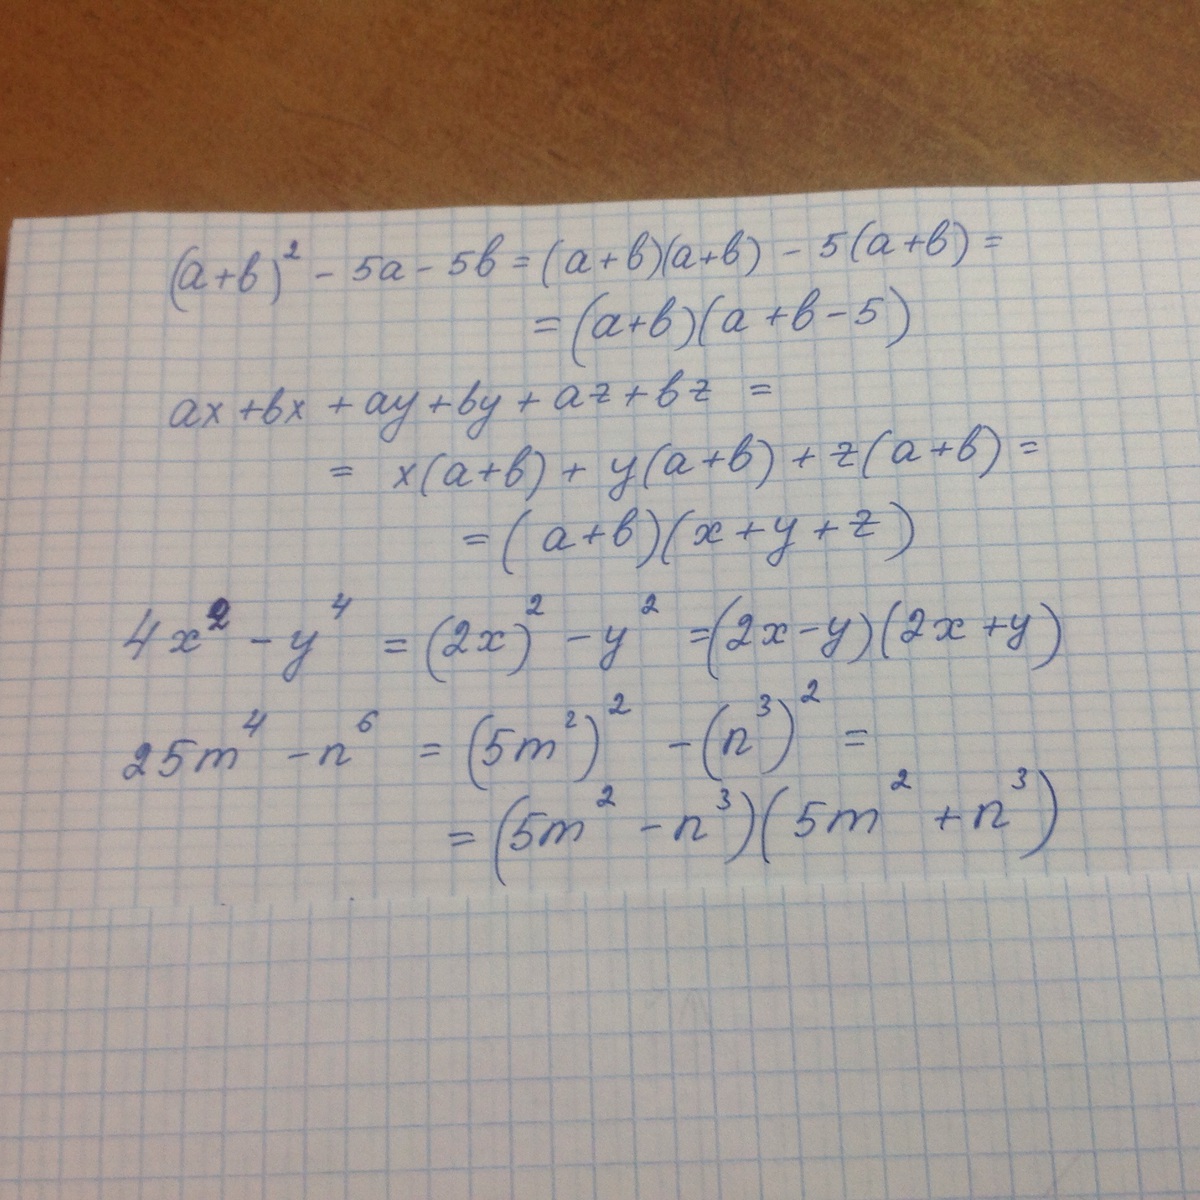 (a+b)² - 5a - 5b = (a+b)(a+b) - 5(a+b) =
= (a+b)(a+b-5)
ax + bx + ay + by + az + bz =
= x(a+b) + y(a+b) + z(a+b) =
= (a+b)(x+y+z)
4x² - y⁴ = (2x)² - y² = (2x-y)(2x+y)
25m⁴ - n⁶ = (5m²)² - (n³)² =
= (5m² - n³)(5m² + n³)